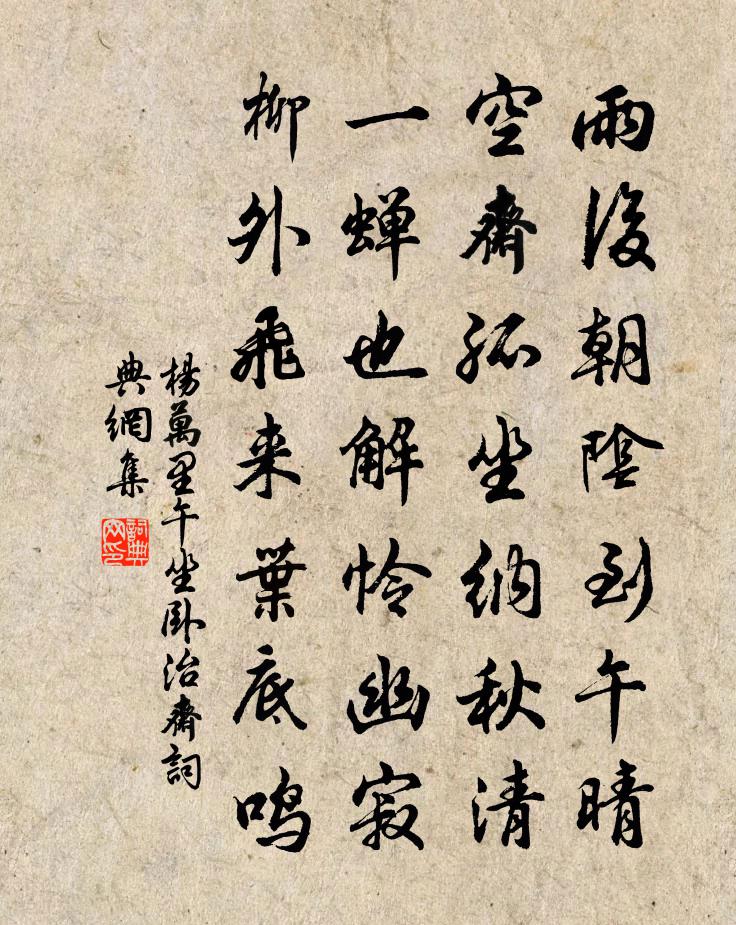 雨後朝陰到午晴
空齋孤坐納秋清
一蟬也解憐幽寂
柳外飛来葉底鳴
楊萬里午坐卧治齋詞
典網集
詞典
网印